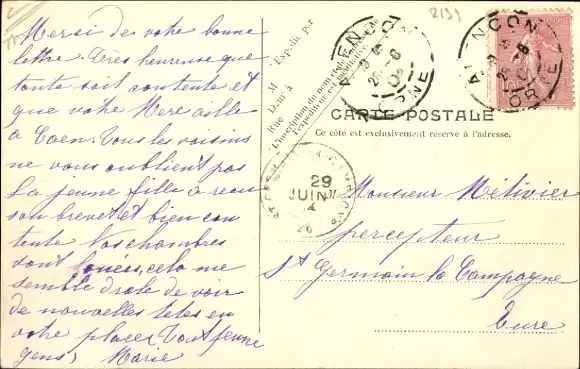 Merci de votre bonne
lettre. Très heureuse que
toute soit contente et
que votre Mère aille
à Caen. Tous les voisins
ne vous oublient pas
La jeune fille a reçu
son brevet et bien con
tente Vos chambres
sont louées, cela me
semble drole de voir
de nouvelles têtes en
votre place (tout jeune
gens) Marie
M
Expédié par
Dem. à
Rue
L'inscription du nom et de l'adresse de
l'expéditeur est facultative
2199
ALENÇON
ORNE
ALENÇON
ORNE
CARTE POSTALE
Ce côté est exclusivement réservé à l'adresse.
29
JUIN
26
Monsieur Métivier
percepteur
St Germain la Campagne
Eure